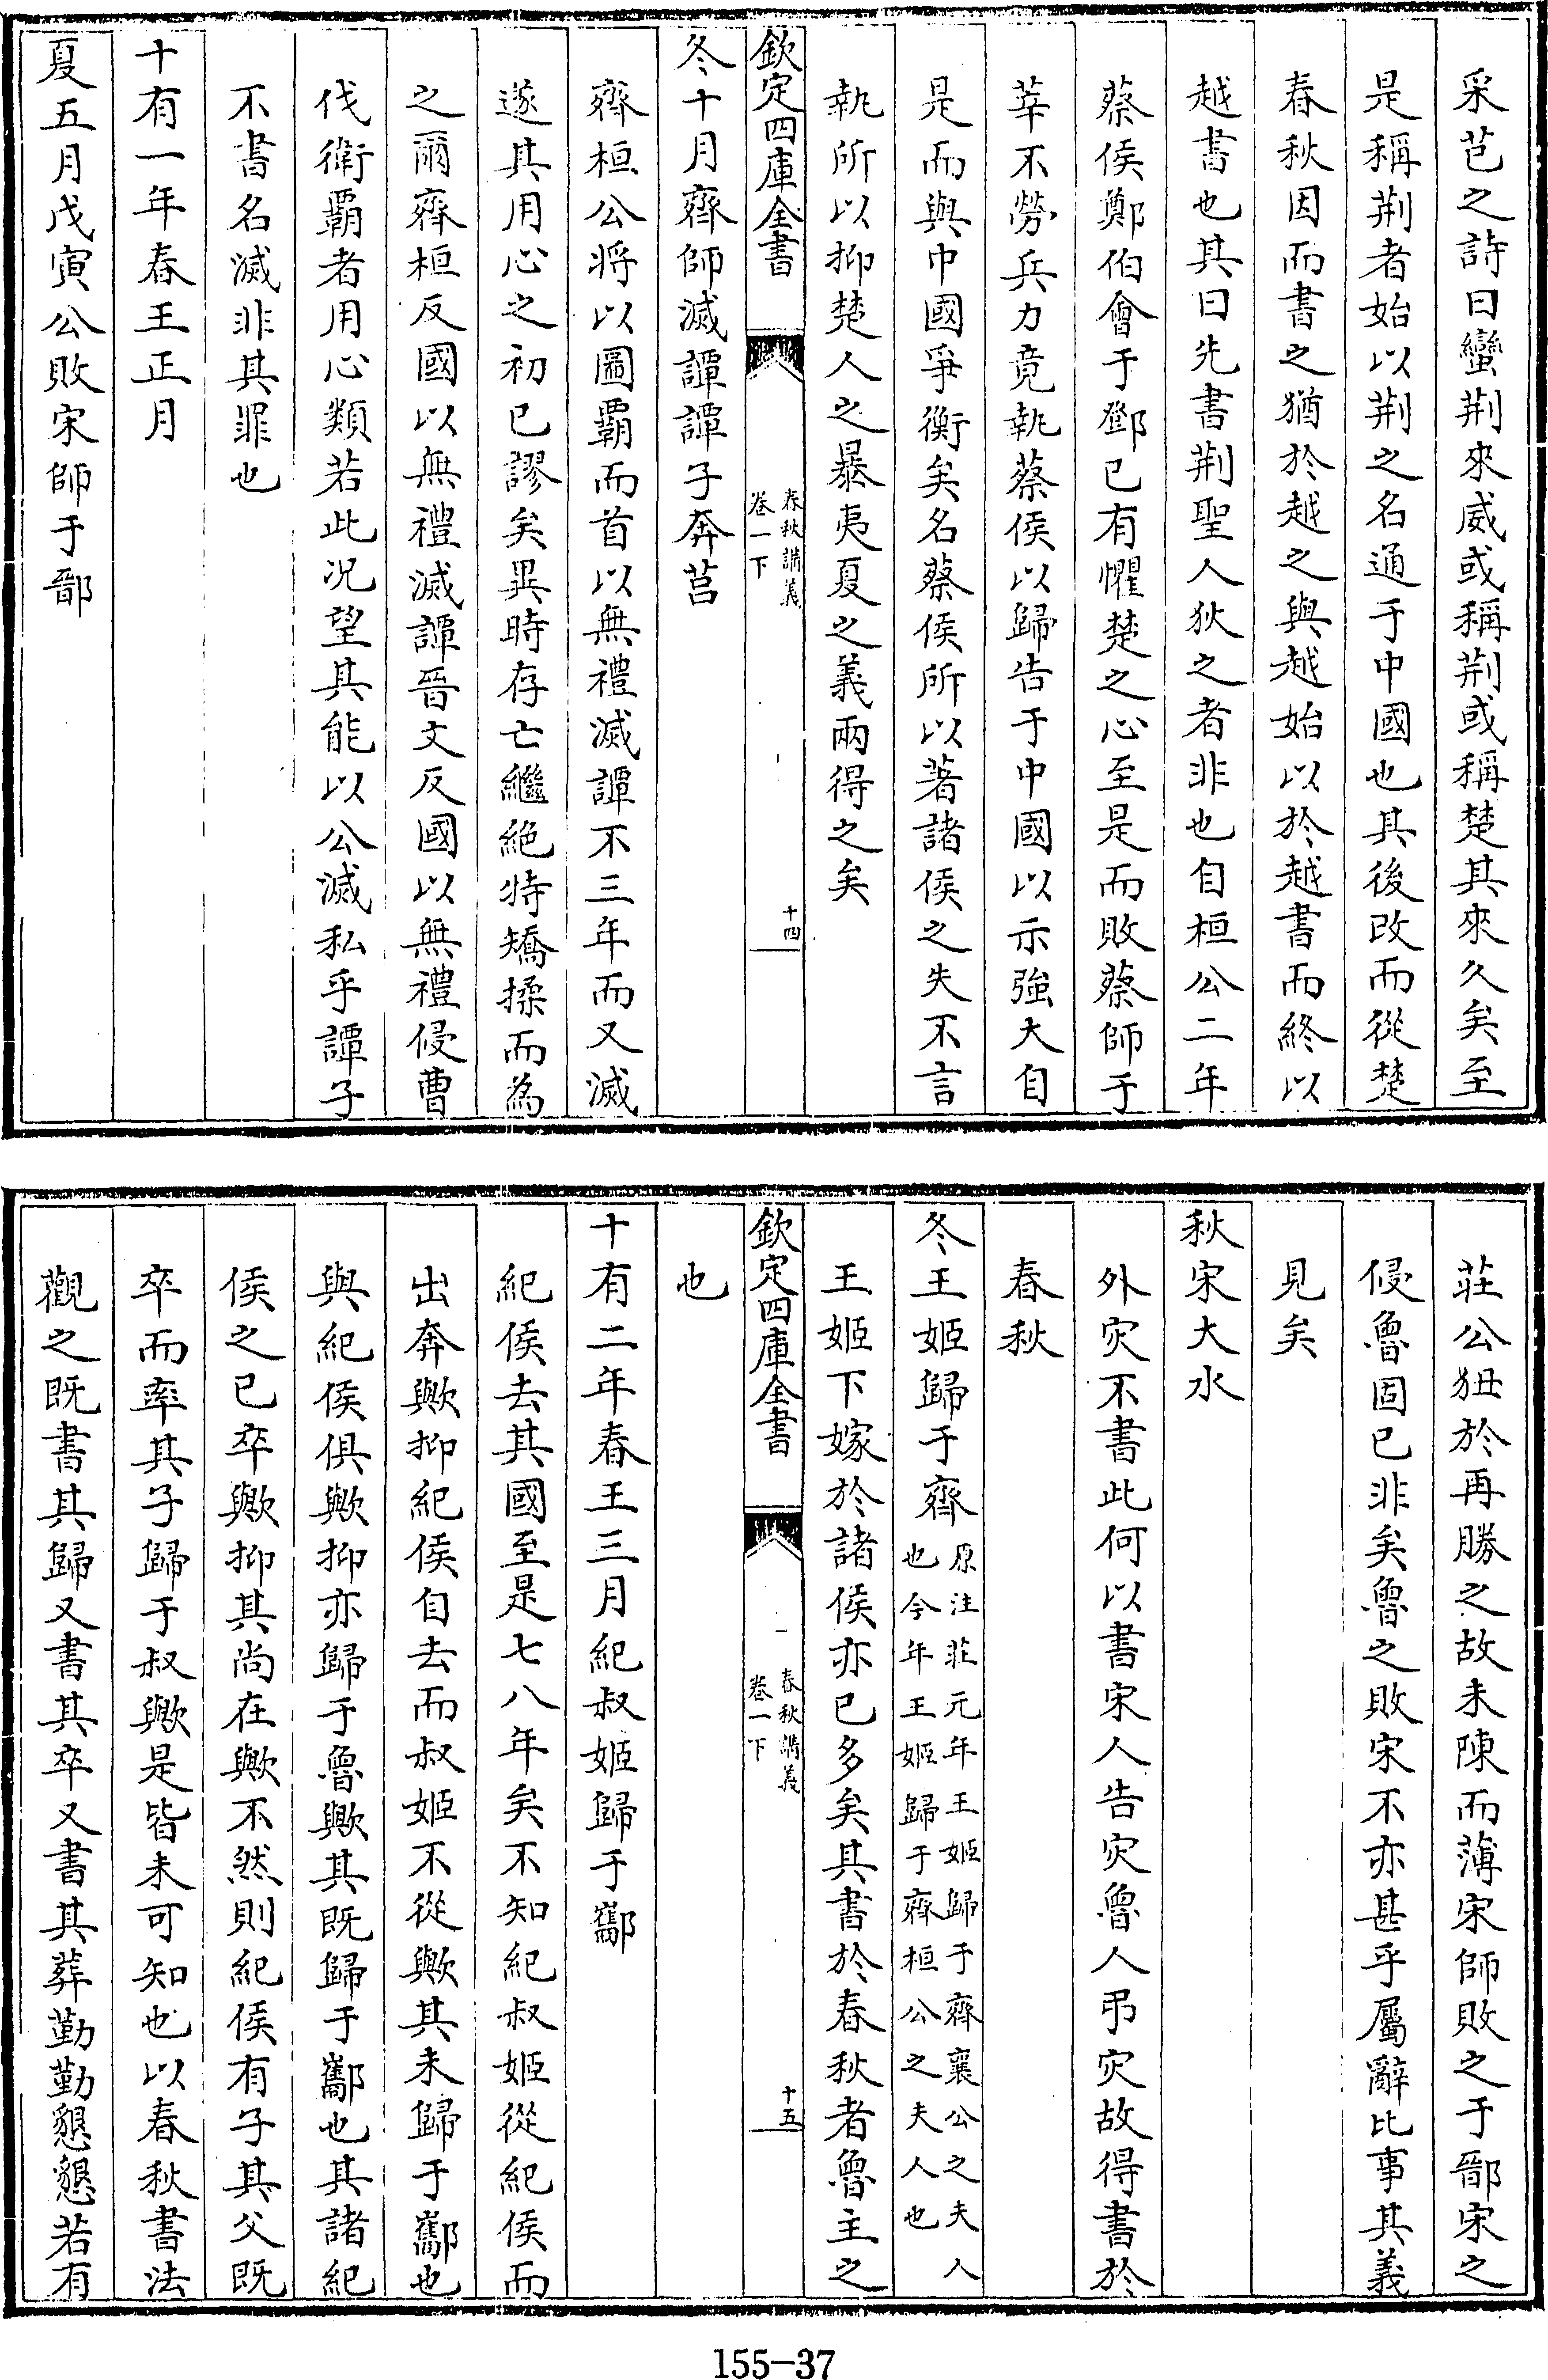 采芑之詩曰蠻荆來威或稱荆或稱楚其來久矣至
是稱荆者始以荆之名通于中國也其後改而從楚
春秋因而書之猶於越之與越始以於越書而終以
越書也其曰先書荆聖人狄之者非也自桓公二年
蔡侯鄭伯會于鄧已有懼楚之心至是而敗蔡師于
莘不勞兵力竟執蔡侯以歸告于中國以示強大自
是而與中國爭衡矣名蔡侯所以著諸侯之失不言
執所以抑楚人之暴夷夏之義兩得之矣
欽定四庫全書
春秋講義
卷一下
十四
冬十月齊師滅譚譚子奔莒
齊桓公將以圖霸而首以無禮滅譚不三年而又滅
遂其用心之初已謬矣異時存亡繼絶特矯揉而為
之爾齊桓反國以無禮滅譚晉文反國以無禮侵曹
伐衛霸者用心類若此况望其能以公滅私乎譚子
不書名滅非其罪也
十有一年春王正月
夏五月戊寅公敗宋師于鄑
莊公狃於再勝之故未陳而薄宋師敗之于鄑宋之
侵魯固已非矣魯之敗宋不亦甚乎屬辭比事其義
見矣
秋宋大水
外灾不書此何以書宋人告灾魯人弔灾故得書於
春秋
冬王姬歸于齊原注莊元年王姬歸于齊襄公之夫人
也今年王姬歸于齊桓公之夫人也
王姬下嫁於諸侯亦已多矣其書於春秋者魯主之
欽定四庫全書
春秋講義
卷一下
十五
也
十有二年春王三月紀叔姬歸于酅
紀侯去其國至是七八年矣不知紀叔姬從紀侯而
出奔歟抑紀侯自去而叔姬不從歟其未歸于酅也
與紀侯俱歟抑亦歸于魯歟其既歸于酅也其諸紀
侯之已卒歟抑其尚在歟不然則紀侯有子其父既
卒而率其子歸于叔歟是皆未可知也以春秋書法
觀之既書其歸又書其卒又書其葬勤勤懇懇若有
155-37